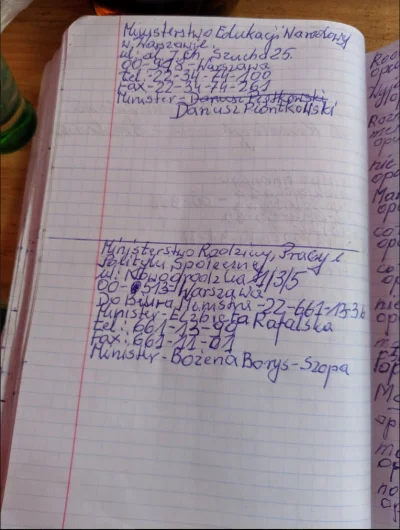 Ministerstwo Edukacji Narodowej
w Warszawie.
ul: al. J. Ch. Szucha 25.
00-918-Warszawa
Tel.-22-34-74-100
Fax-22-34-74-261
Minister-Dariusz Piątkowski
Dariusz Piontkowski
Ministerstwo Rodziny, Pracy i
Polityki Społecznej
ul: Nowogrodzka 1/3/5
00-513-Warszawa
Do Biura Ministra-22-661-
Minister-Elżbieta Rafalska
tel: 661-
Fax: 661-11-
Minister-Bożena Borys-Szopa